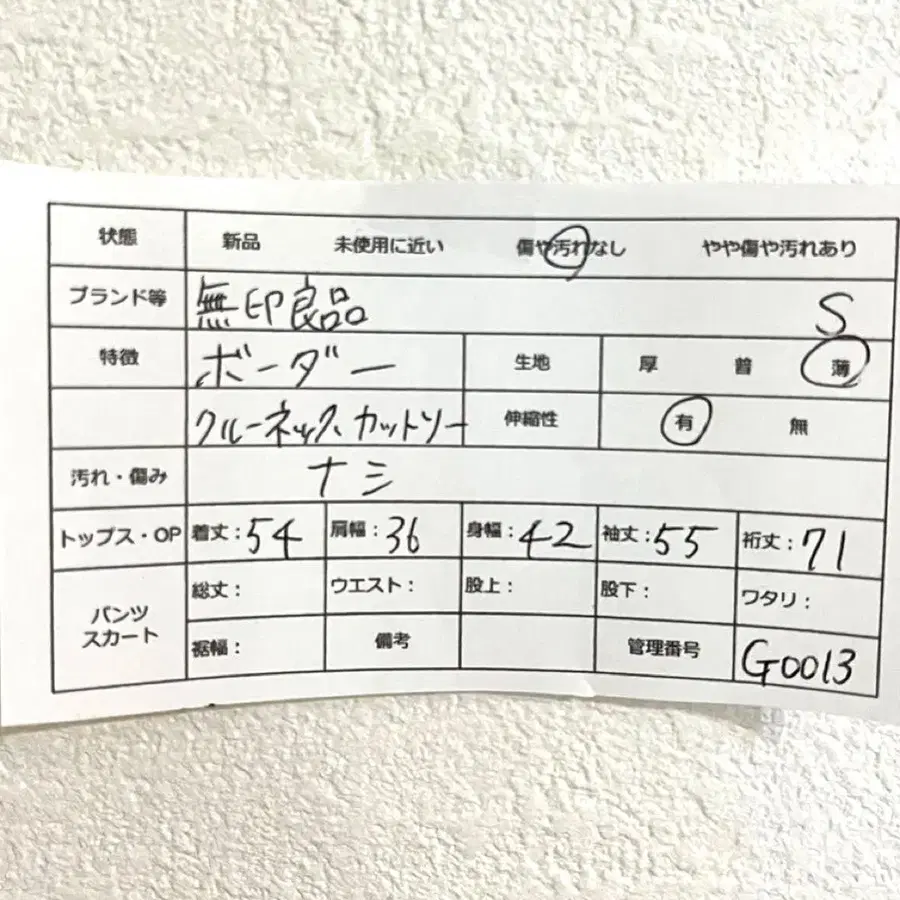 状態 新品 未使用に近い 傷や汚れなし やや傷や汚れあり
ブランド等 無印良品 S
特徴 ボーダー 生地 厚 普 薄
クルーネックカットソー 伸縮性 有 無
汚れ・傷み ナシ
トップス・OP 着丈:54 肩幅:36 身幅:42 袖丈:55 裄丈:71
パンツ スカート 総丈: ウエスト: 股上: 股下: ワタリ:
裾幅: 備考 管理番号 G0013